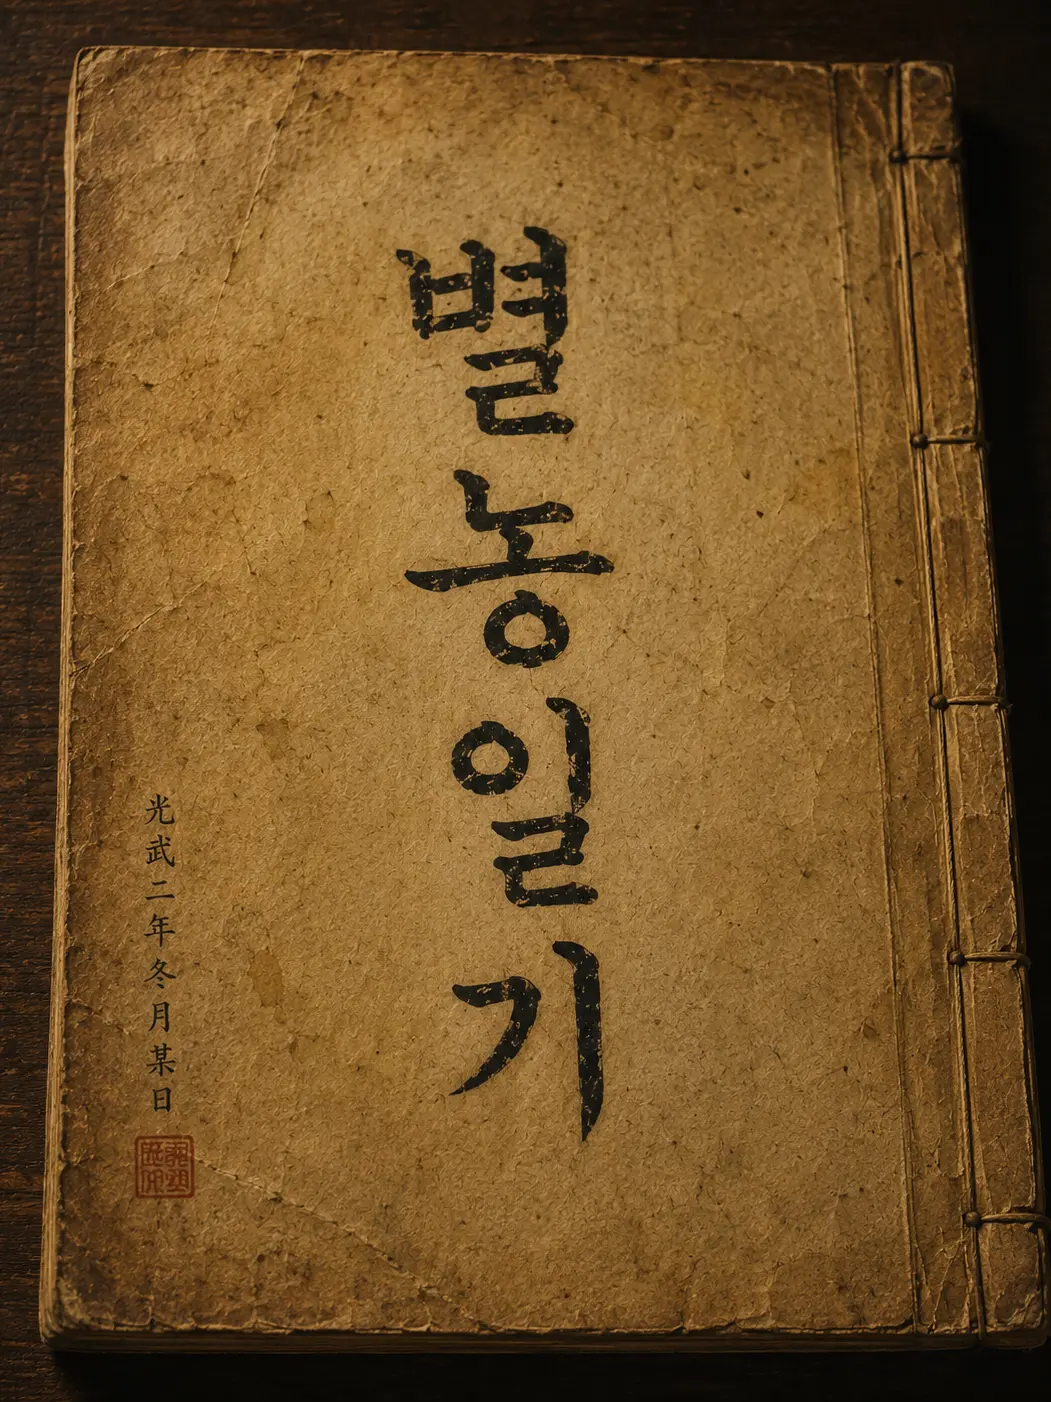 별농일기
光武二年冬月某日